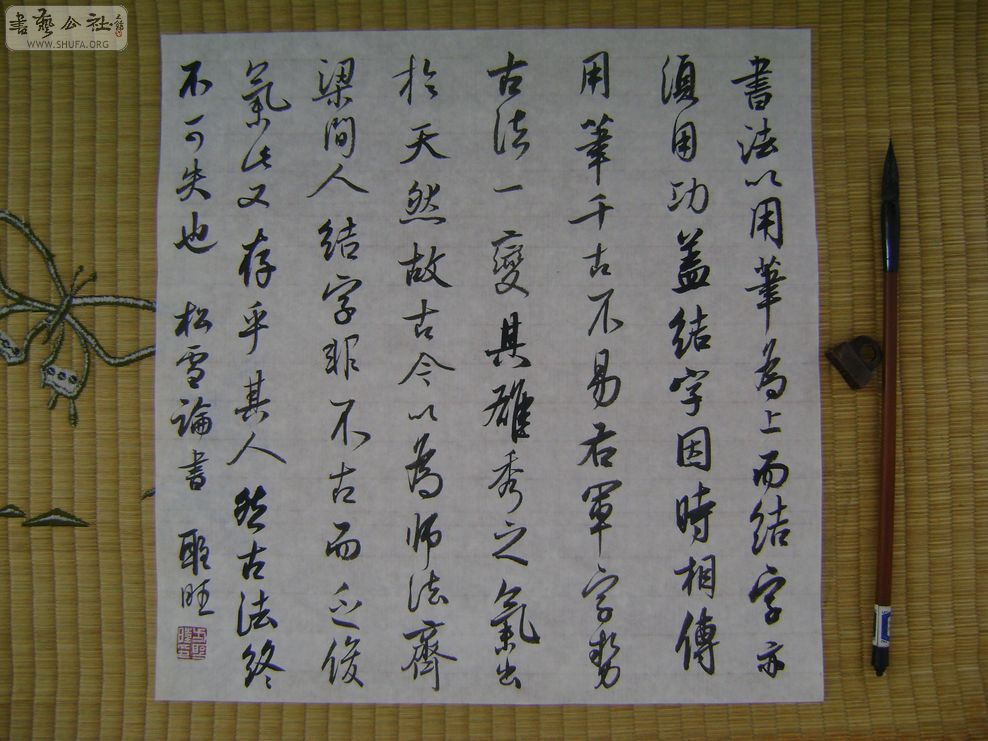 書法以用筆為上而結字亦
須用功蓋結字因時相傳
用筆千古不易右軍字勢
古法一變其雄秀之氣出
於天然故古今以為师法齊
梁間人結字非不古而乏俊
氣此又存乎其人然古法終
不可失也 松雪論書
書藝公社
WWW.SHUFA.ORG